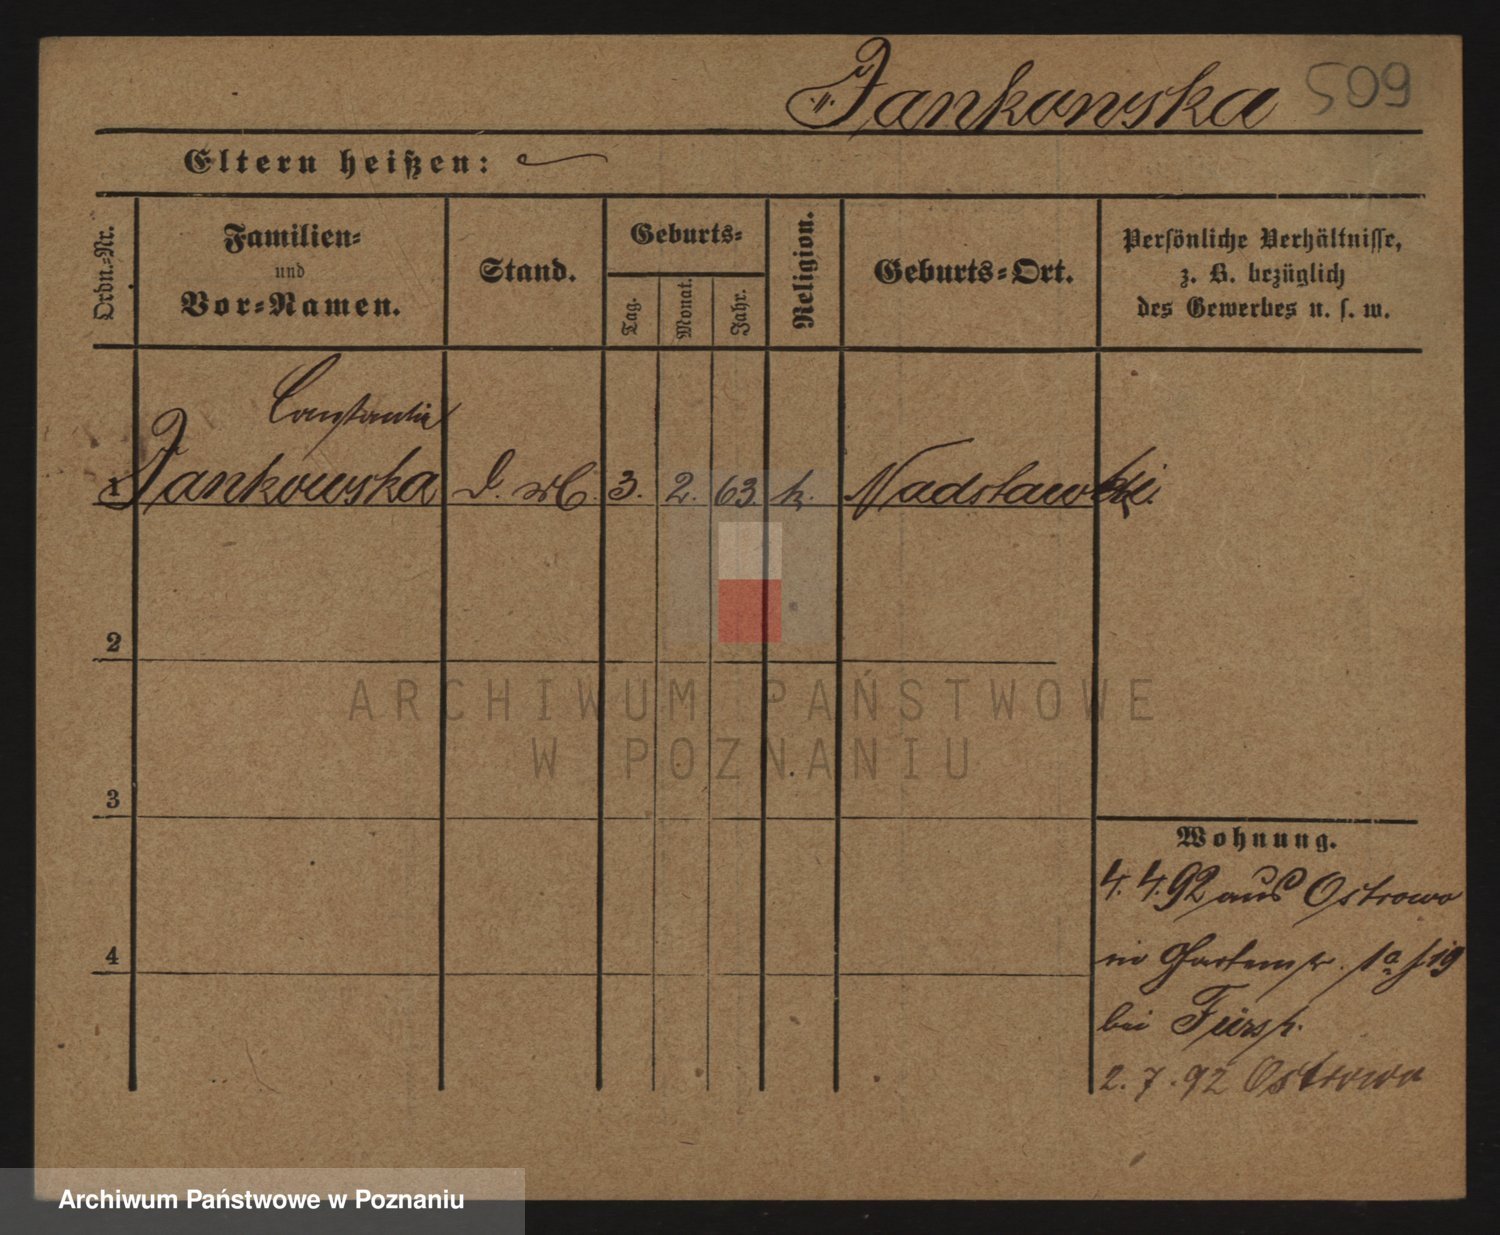 Jankowska 509
Eltern heißen:
Ordn.-Nr.
Familien-
und
Vor-Namen.
Stand.
Geburts-
Tag.
Monat.
Jahr.
Religion.
Geburts-Ort.
Persönliche Verhältnisse,
z. B. bezüglich
des Gewerbes u. s. w.
Constantia
1 Jankowska 3. 2. 63. k. Nadstawki
2
3
4
Wohnung.
4. 4. 92 aus Ostrowo
in Gartenstr. 1a
bei
2. 7. 92 Ostrowo
ARCHIWUM PAŃSTWOWE
W POZNANIU
Archiwum Państwowe w Poznaniu